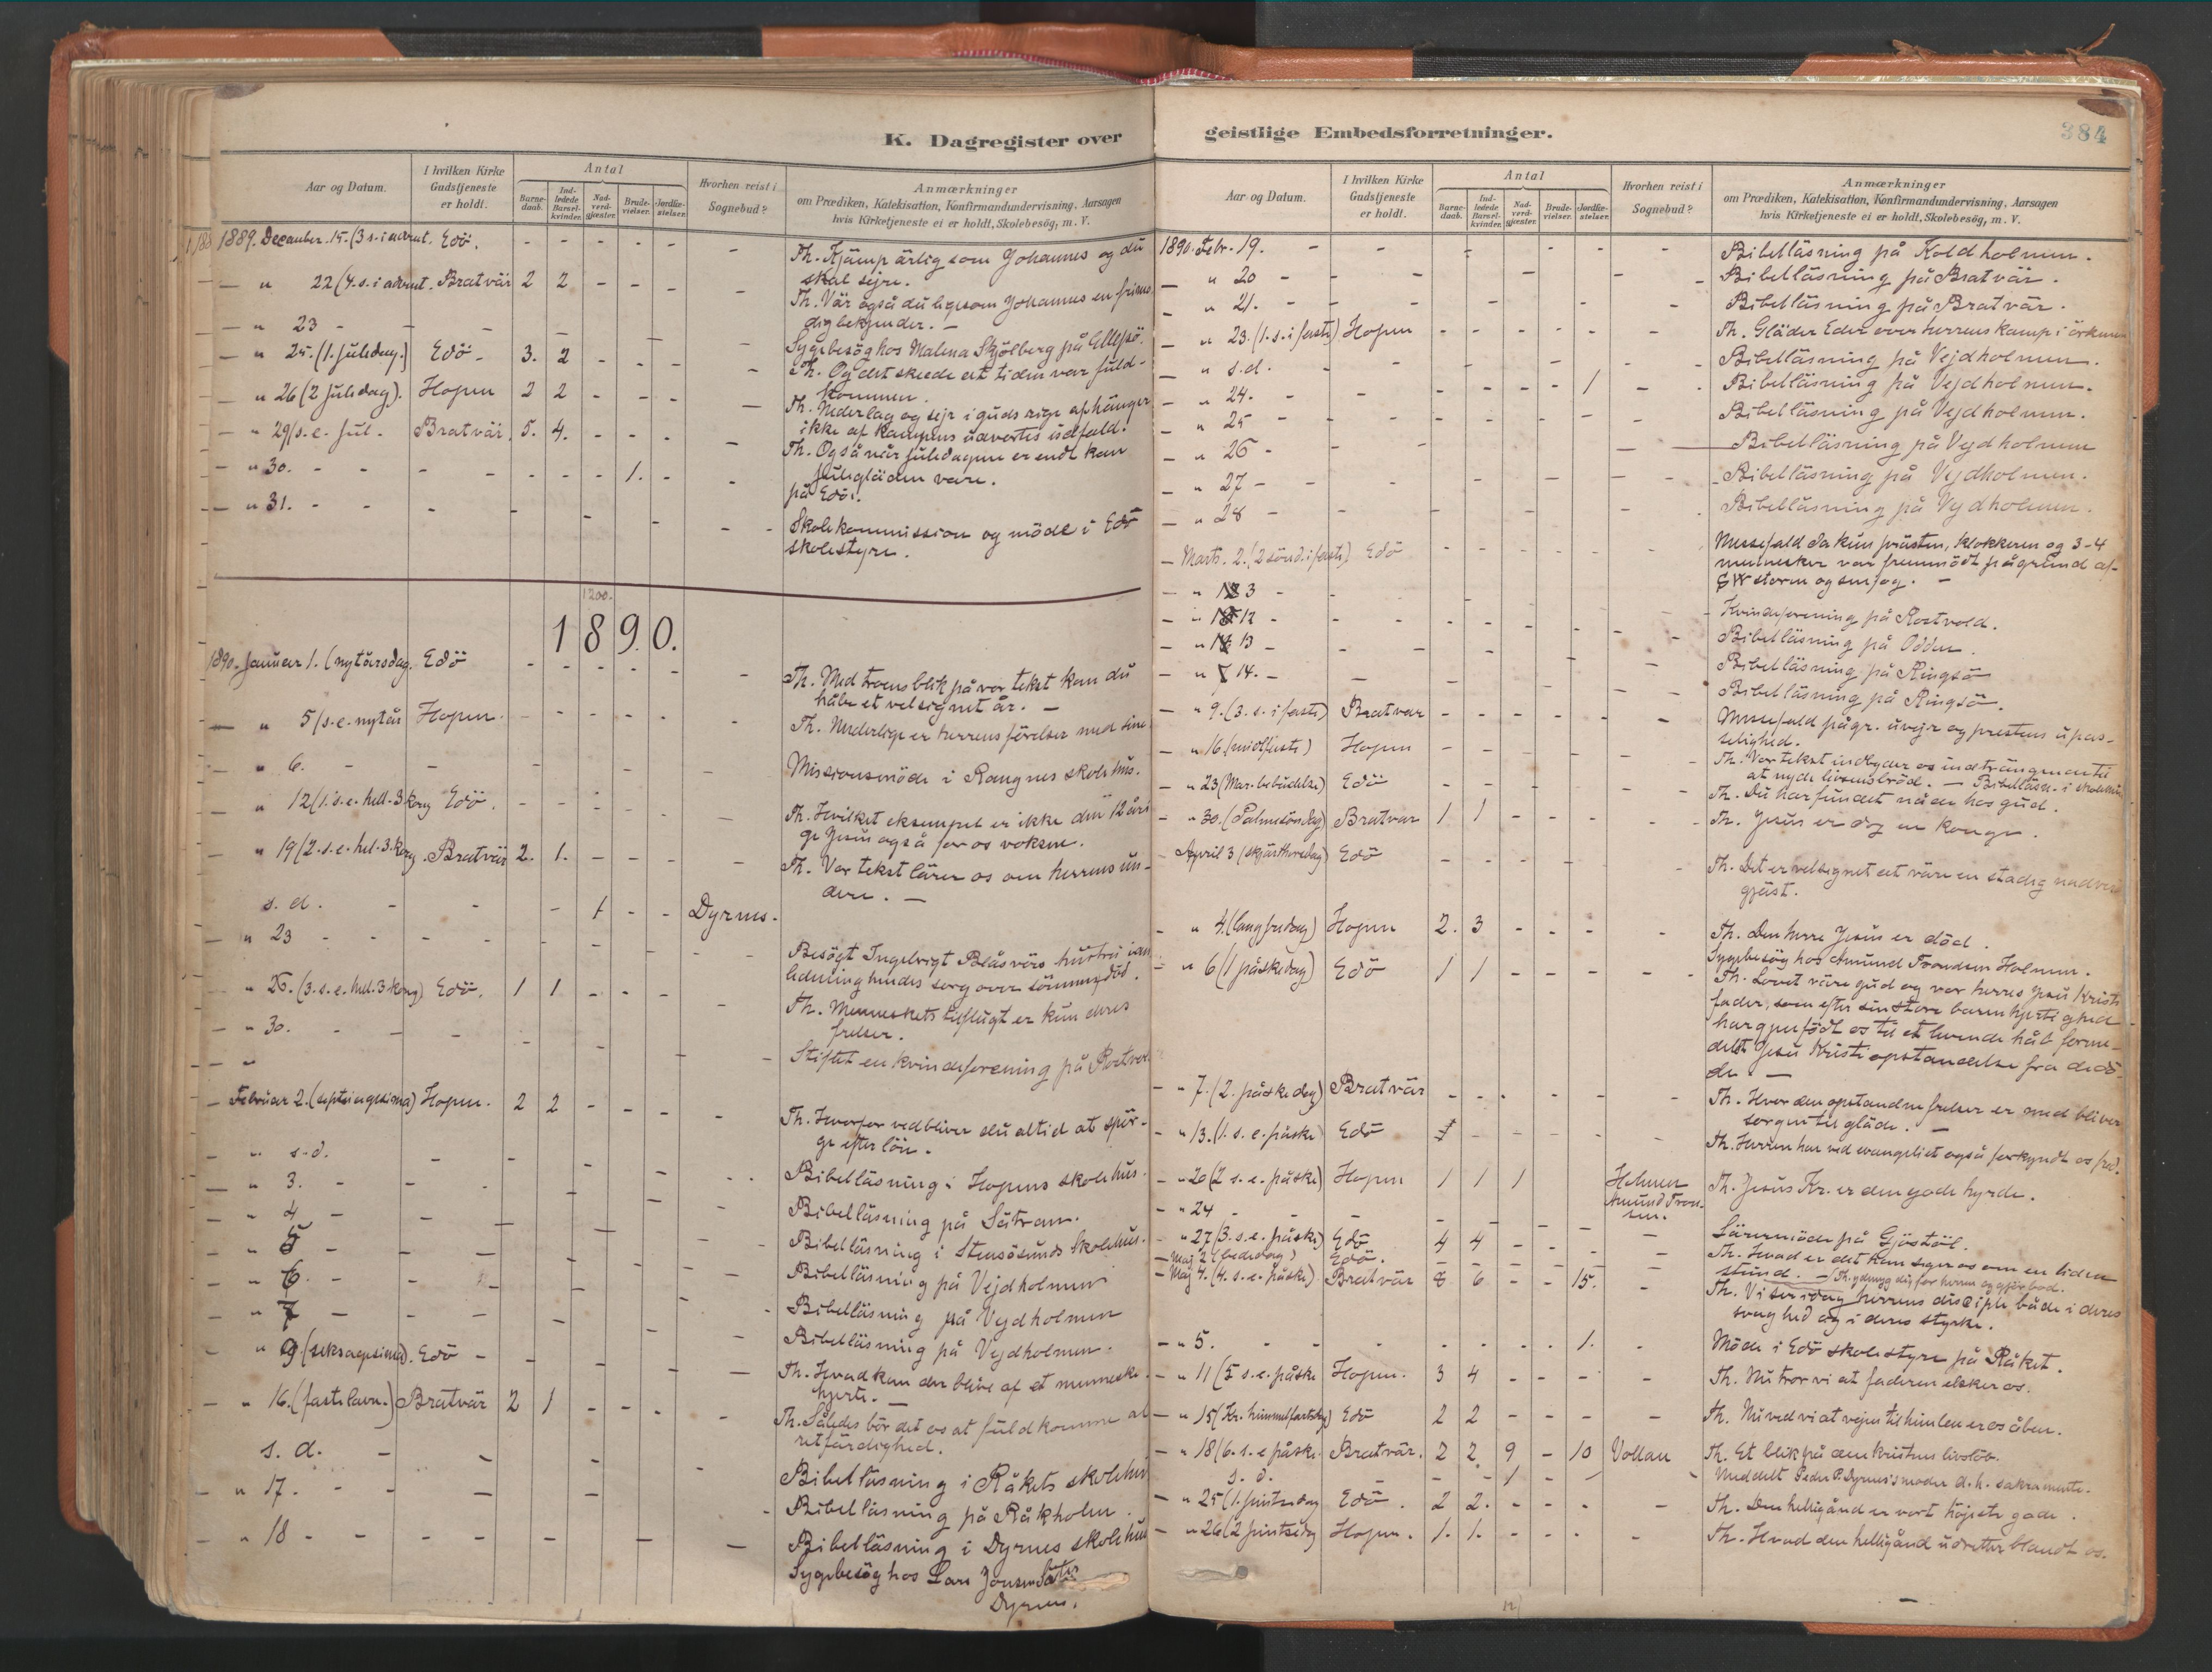 K. Dagregister over
Aar og Datum.
I hvilken Kirke Gudstjeneste er holdt.
Antal
Barne-daab.
Ind-ledede Barsel-kvinder.
Nad-verd-gjæster.
Brude-vielser.
Jordfæ-stelser.
Hvorhen reist i Sognebud?
Anmærkninger
om Prædiken, Katekisation, Konfirmandundervisning, Aarsagen
hvis Kirketjeneste ei er holdt, Skolebesög, m. V.
1889. December. 15. (3 s. i advent. Edö. - - - - - - Th. Kjämp ärlig som Johannes og du
skal sejre.
— " 22 (4. s. i advent. Bratvär 2 2 - - - - Th. Vär også du ligesom Johannes en frimo
dig bekjender. —
— " 23 - - - - Sygebesög hos Malena Skjölberg på
— " 25. (1. juledag.) Edö - 3. 2 - - - - Th. Og det skede at tiden var fuld-
kommen.
" 26 (2 juledag). Hopen 2 2 - - - — Th. Nederlag og sejr i guds rige afhänger
ikke af kampens udvortes udfald.
- " 29 (s. e. jul. Bratvär. 5. 4. - - - - Th. Også när juledagene er endt kan
juleglæden vare.
- " 30. - - - - - - - 1. - - på Edö.
— " 31. - - - - - - - Skolekommission og möde i Edö
skolestyre.
1200.
1890.
1890. Januar 1. (nytårsdag. Edö - - - - - - Th. Med troens blik på vor tekst kan du
håbe et velsignet år. —
— " 5 (s. e. nytår Hopen. - - - - - - Th. Underlige er herrens förelser med sine
- " 6. - - - - - - Missionsmöde i Rangnes skolehus.
" 12 (1. s. e. hell. 3 kong Edö. - - - - - — Th. Hvilket eksempel er ikke den 12 åri
ge Jesus også for os voksne.
" 19 (2. s. e. hel. 3. kong. Bratvär 2. 1. - - - - Th. Vor tekst lärer os om herrens un-
dere. —
s. d. - - - - 1 - - Dyrnes.
— " 23 - - - - - - - Besögt Ingebrigt Blåsvärs hustru i an
ledning hendes sorg over sönnens död.
- " 26. (3. s. e. hel. 3 kong) Edö. 1 1 - - - Th. Menneskets tilflugt er kun deres
frelser.
— " 30. - - - - - - Stiftet en kvindeforening på
— Februar 2. (septuagesima) Hopen. 2 2 - - - - Th. Hvorfor vedbliver du altid at spör-
ge efter lön.
- " s. d. - - - - - - Bibelläsning i Hopens skolehus.
- " 3. - - - - - Bibelläsning på Sätran.
- " 4 - - - - - Bibelläsning i Stensösunds Skolehus.
- " 5 - - - - - Bibelläsning på Vejdholmen
- " 6. - - - - - Bibelläsning på Vejdholmen
- " 7 - - - - - Bibelläsning på Vejdholmen.
" 9 (seksagesima). Edö - - - - — Th. Hvad kan der blive af et menneske-
hjerte. —
- " 16. (fastelavn.) Bratvär 2 1 - - - - Th. Således bör det os at fuldkomme al
retfärdighed.
s. d. - - - - Bibelläsning i Råkets skolehus
— " 17. - - - - - Bibelläsning på Råkholm.
" 18 - - - - - - — Bibelläsning i Dyrnes skolehus
Sygebesög hos Lars
Dyrnes.
geistlige Embedsforretninger.
384
Aar og Datum.
I hvilken Kirke Gudstjeneste er holdt.
Antal
Barne-daab.
Ind-ledede Barsel-kvinder.
Nad-verd-gjæster.
Brude-vielser.
Jordfæ-stelser.
Hvorhen reist i Sognebud?
Anmærkninger
om Prædiken, Katekisation, Konfirmandundervisning, Aarsagen
hvis Kirketjeneste ei er holdt, Skolebesög, m. V.
1890. Febr. 19. - - - - - - Bibelläsning på Koldholmen.
— " 20 - - - - - Bibelläsning på Bratvär.
- " 21. - - - - - Bibelläsning på Bratvär.
- " 23. (1. s. i faste) Hopen - - - - - - Th. Gläder Eder over herrens kamp i örkenen
— " s. d. - - - - - Bibelläsning på Vejdholmen.
- " 24. - - - - - - 1 - Bibelläsning på Vejdholmen.
- " 25 - - - - - Bibelläsning på Vejdholmen.
- " 26 - - - - - Bibelläsning på Vejdholmen
- " 27 - - - - - Bibelläsning på Vejdholmen.
- " 28 - - - - - Bibelläsning på Vejdholmen.
— Marts. 2. (2 sönd. i faste) Edö - - - - - - Messefald da kun prästen, klokkeren og 3-4
mennesker var fremmödt på grund af
SW storm og snefog. —
- " 3 - - - - Kvindeforening på
- " 12 - - - - - Bibelläsning på Odden.
- " 13 - - - - - Bibelläsning på Ringsö
- " 14. - - - - - Bibelläsning på Ringsö.
— " 9. (3. s. i faste) Bratvär - - - - - - Messefald pågr. uvejr og prestens upas-
selighed.
— " 16. (midtfaste) Hopen - - - - - - Th. Vor tekst indbyder os indtrængende til
at nyde livsens bröd. — Bibelläsn. i skolehus
— " 23 (Mar. bebudelse) Edö - - - - - - Th. Du har fundet nåde hos gud.
- " 30. (Palmesöndag) Bratvär 1 1 - - - - Th. Jesus er dog en konge.
- April 3 (skjärthorsdag) Edö - - - - - - Th. Det er velsignet at väre en stadig nadver
gjäst.
- " 4. (langfredag) Hopen 2. 3 - - - - Th. Den herre Jesus er död.
Sygebesög hos Amund Trondsen Holmen.
- " 6 (1 påskedag) Edö 1 1 - - - - Th. Lovet väre gud og vor herres Jesu Kristi
fader, som efter sin store barmhjertighed
har gjenfödt os til et levende håb forme-
delst Jesu Kristi opstandelse fra de dö-
de. —
- " 7. (2. påskedag) Bratvär - - - - - - Th. Hvor den opstandne frelser er med bliver
sorgen til gläde. —
- " 13. (1. s. e. påske) Edö - - - - - Th. Herren har ved evangeliet også forkyndt os fred.
- " 20 (2 s. e. påske) Hopen 1 1 1 Holmen
Amund Tron-
sen. Th. Jesus Kr. er den gode hyrde.
- " 24 - - - - - - Lärermöde på Gjöstöl.
- " 27 (3. s. e. påske) Edö 4 4 - - - - Th. Hvad er det han siger os om en liden
stund. —
— Maj 2 (bededag) Edö. - - - - Th. ydmyg dig for herren og gjör bod.
— Maj 4. (4. s. e. påske) Bratvär 8 6 - - 15. - Th. Vi ser idag herrens disciple både i deres
svaghed og i deres styrke.
- " 5. - - - - - - 1. - Möde i Edö skolestyre på Råket.
- " 11 (5 s. e. påske Hopen. 3 4 - - - - Th. Nu tror vi at faderen elsker os.
- " 15 (Kr. himmelfartsdag) Edö 2 2 - - - - Th. Nu ved vi at vejen til himlen er os åben.
- " 18 (6. s. e påske. Bratvär. 2 2 9 - 10 Vollan Th. Et blik på den kristnes livslöb.
s. d. - - 1 - - - Meddelt Peder P. Dyrnes's moder d. h. sakramente.
- " 25 (1. pintsedag Edö. 2 2. - - - - Th. Den helligånd er vort höjeste gode.
- " 26 (2 pintsedg Hopen. 1. 1. - - - - Th. Hvad den helligånd udretter blandt os.